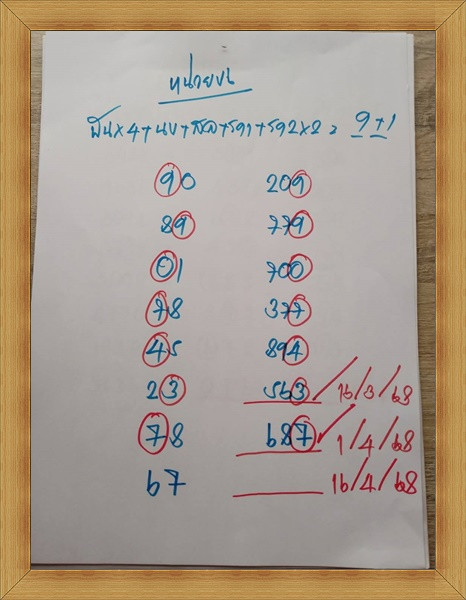 หน่วยบน
พันx4+นบ+
+ + x2= 9+1
90 209
89 779
01 700
78 377
45 894
23 563 / 16/3/68
78 687 / 1/4/68
67 16/4/68